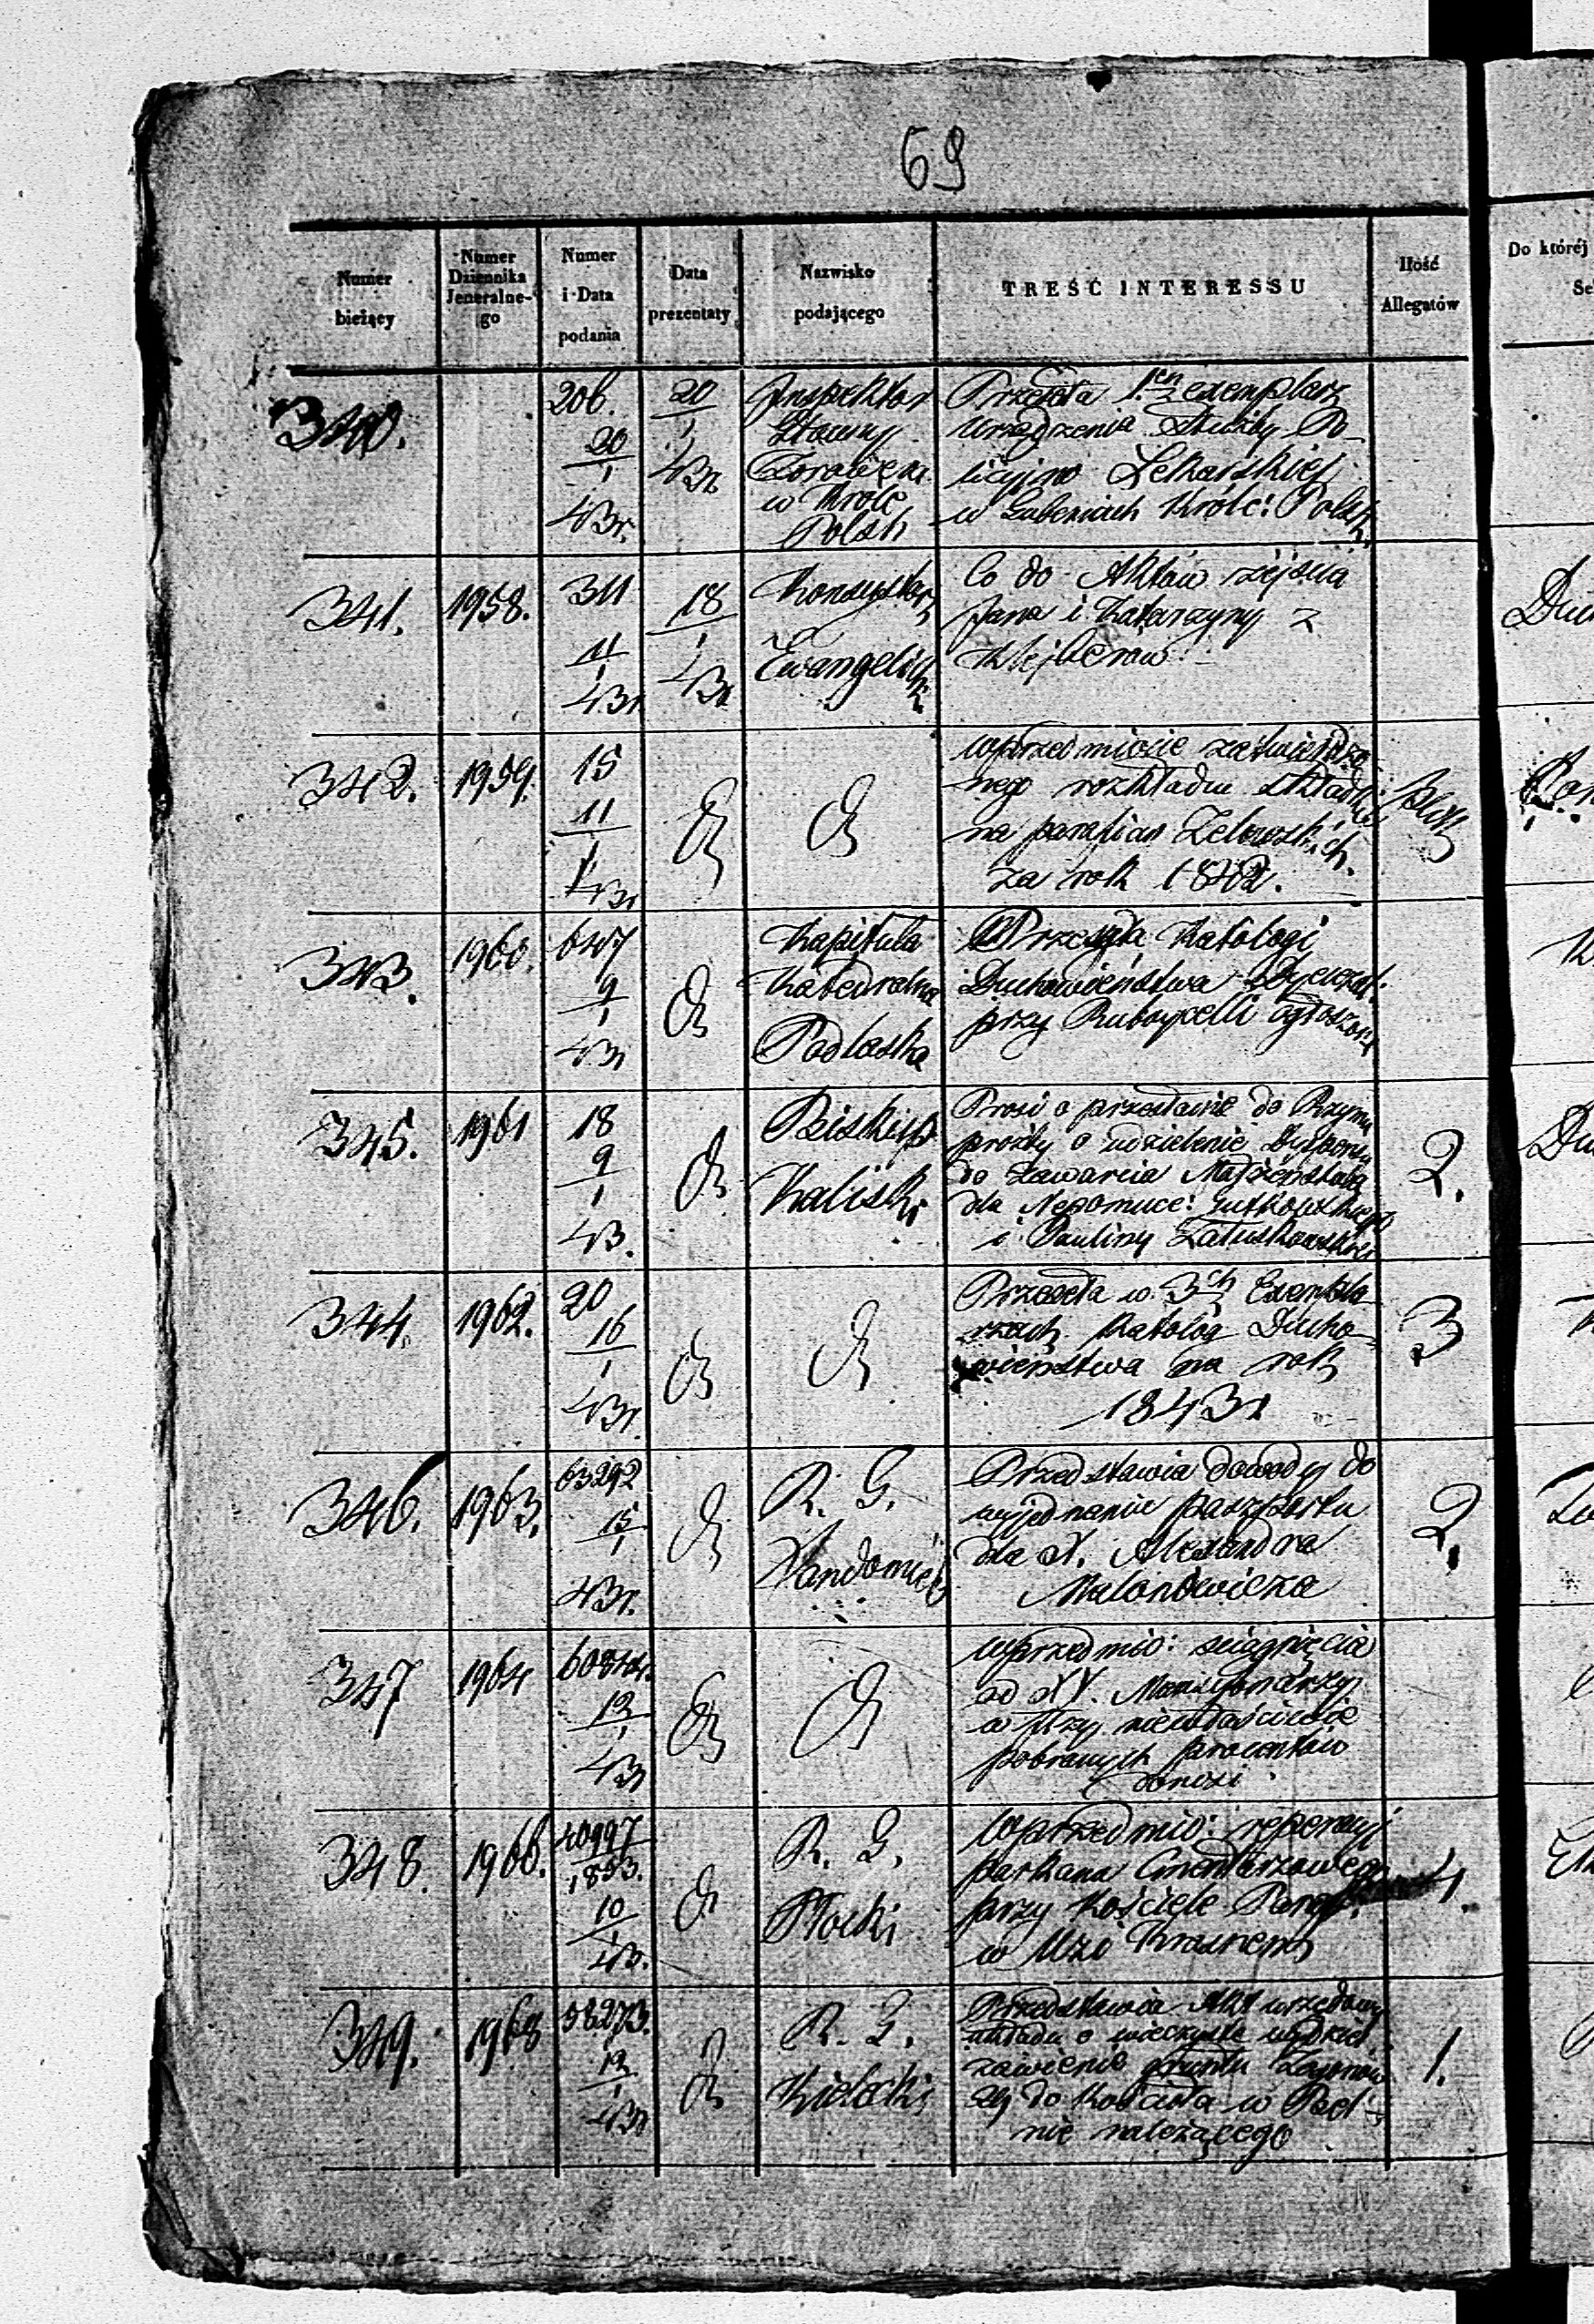 69
Numer bieżący
Numer Dziennika Jeneralne-go
Numer i Data podania
Data prezentaty
Nazwisko podającego
TREŚĆ INTERESSU
Ilość Allegatów
Do któréj
Se
340.
206.
20
1
43r.
20
1
43r
Inspektor
Główny
w Króle
Polsk
Przesyła 1en exemplarz
Urządzenia Służby Po-
licyjno Lekarskiej
w Guberniach Króle: Polsk.
341.
1958.
311
11
1
43r
18
1
43r
Konsystorz
Ewangelicki
Co do Aktów zéjścia
Jana i Katarzyny z
342.
1959.
15
11
1
43r
w przedmiocie zatwierdzo-
nego rozkładu składki
na parafian Zelowskich
za rok 1842.
343.
1960.
647
9
1
43r
Kapituła
Katedralna
Podlaska
Przesyła Katologi
Duchowieństwa Dyecezal:
przy Rubrycelli ogłoszone
345.
1961
18
9
1
43.
Biskup
Kaliski
Prosi o przesłanie do Rzymu
prośby o udzielenie Dyspensy
do zawarcia Małżeństwa
dla Nepomuce: Gutkowskiego
i Pauliny Załuskowskiej
2.
344.
1962.
20
16
1
43r.
Przesyła w 3ch Exempla-
rzach Katolog Ducho-
wieństwa na rok
1843r
3
346.
1963.
63292
15
1
43r.
R. G.
Sandomier
Przedstawia dowody do
wyjednania paszportu
dla X. Alexandra
Malonowicza
2.
347
1964
60844.
12
1
43r
w przedmio: ściągnięcia
od XX. Mansyonarzy
w niewłaściwie
pobranych procentów
donosi
348.
1966.
40997
10
1
43.
R. G.
Płocki
w przedmio: reperacyi
parkana Cmentarzowego
przy Kościele Paraf:
w Wsi Krasnem
4.
349.
1968
58273.
12
1
43r
R. G.
Kielecki
Przedstawia Akt urzędowy
układu o wieczyste wydzier-
żawienie gruntu
do Kościoła w
nie należącego
1.